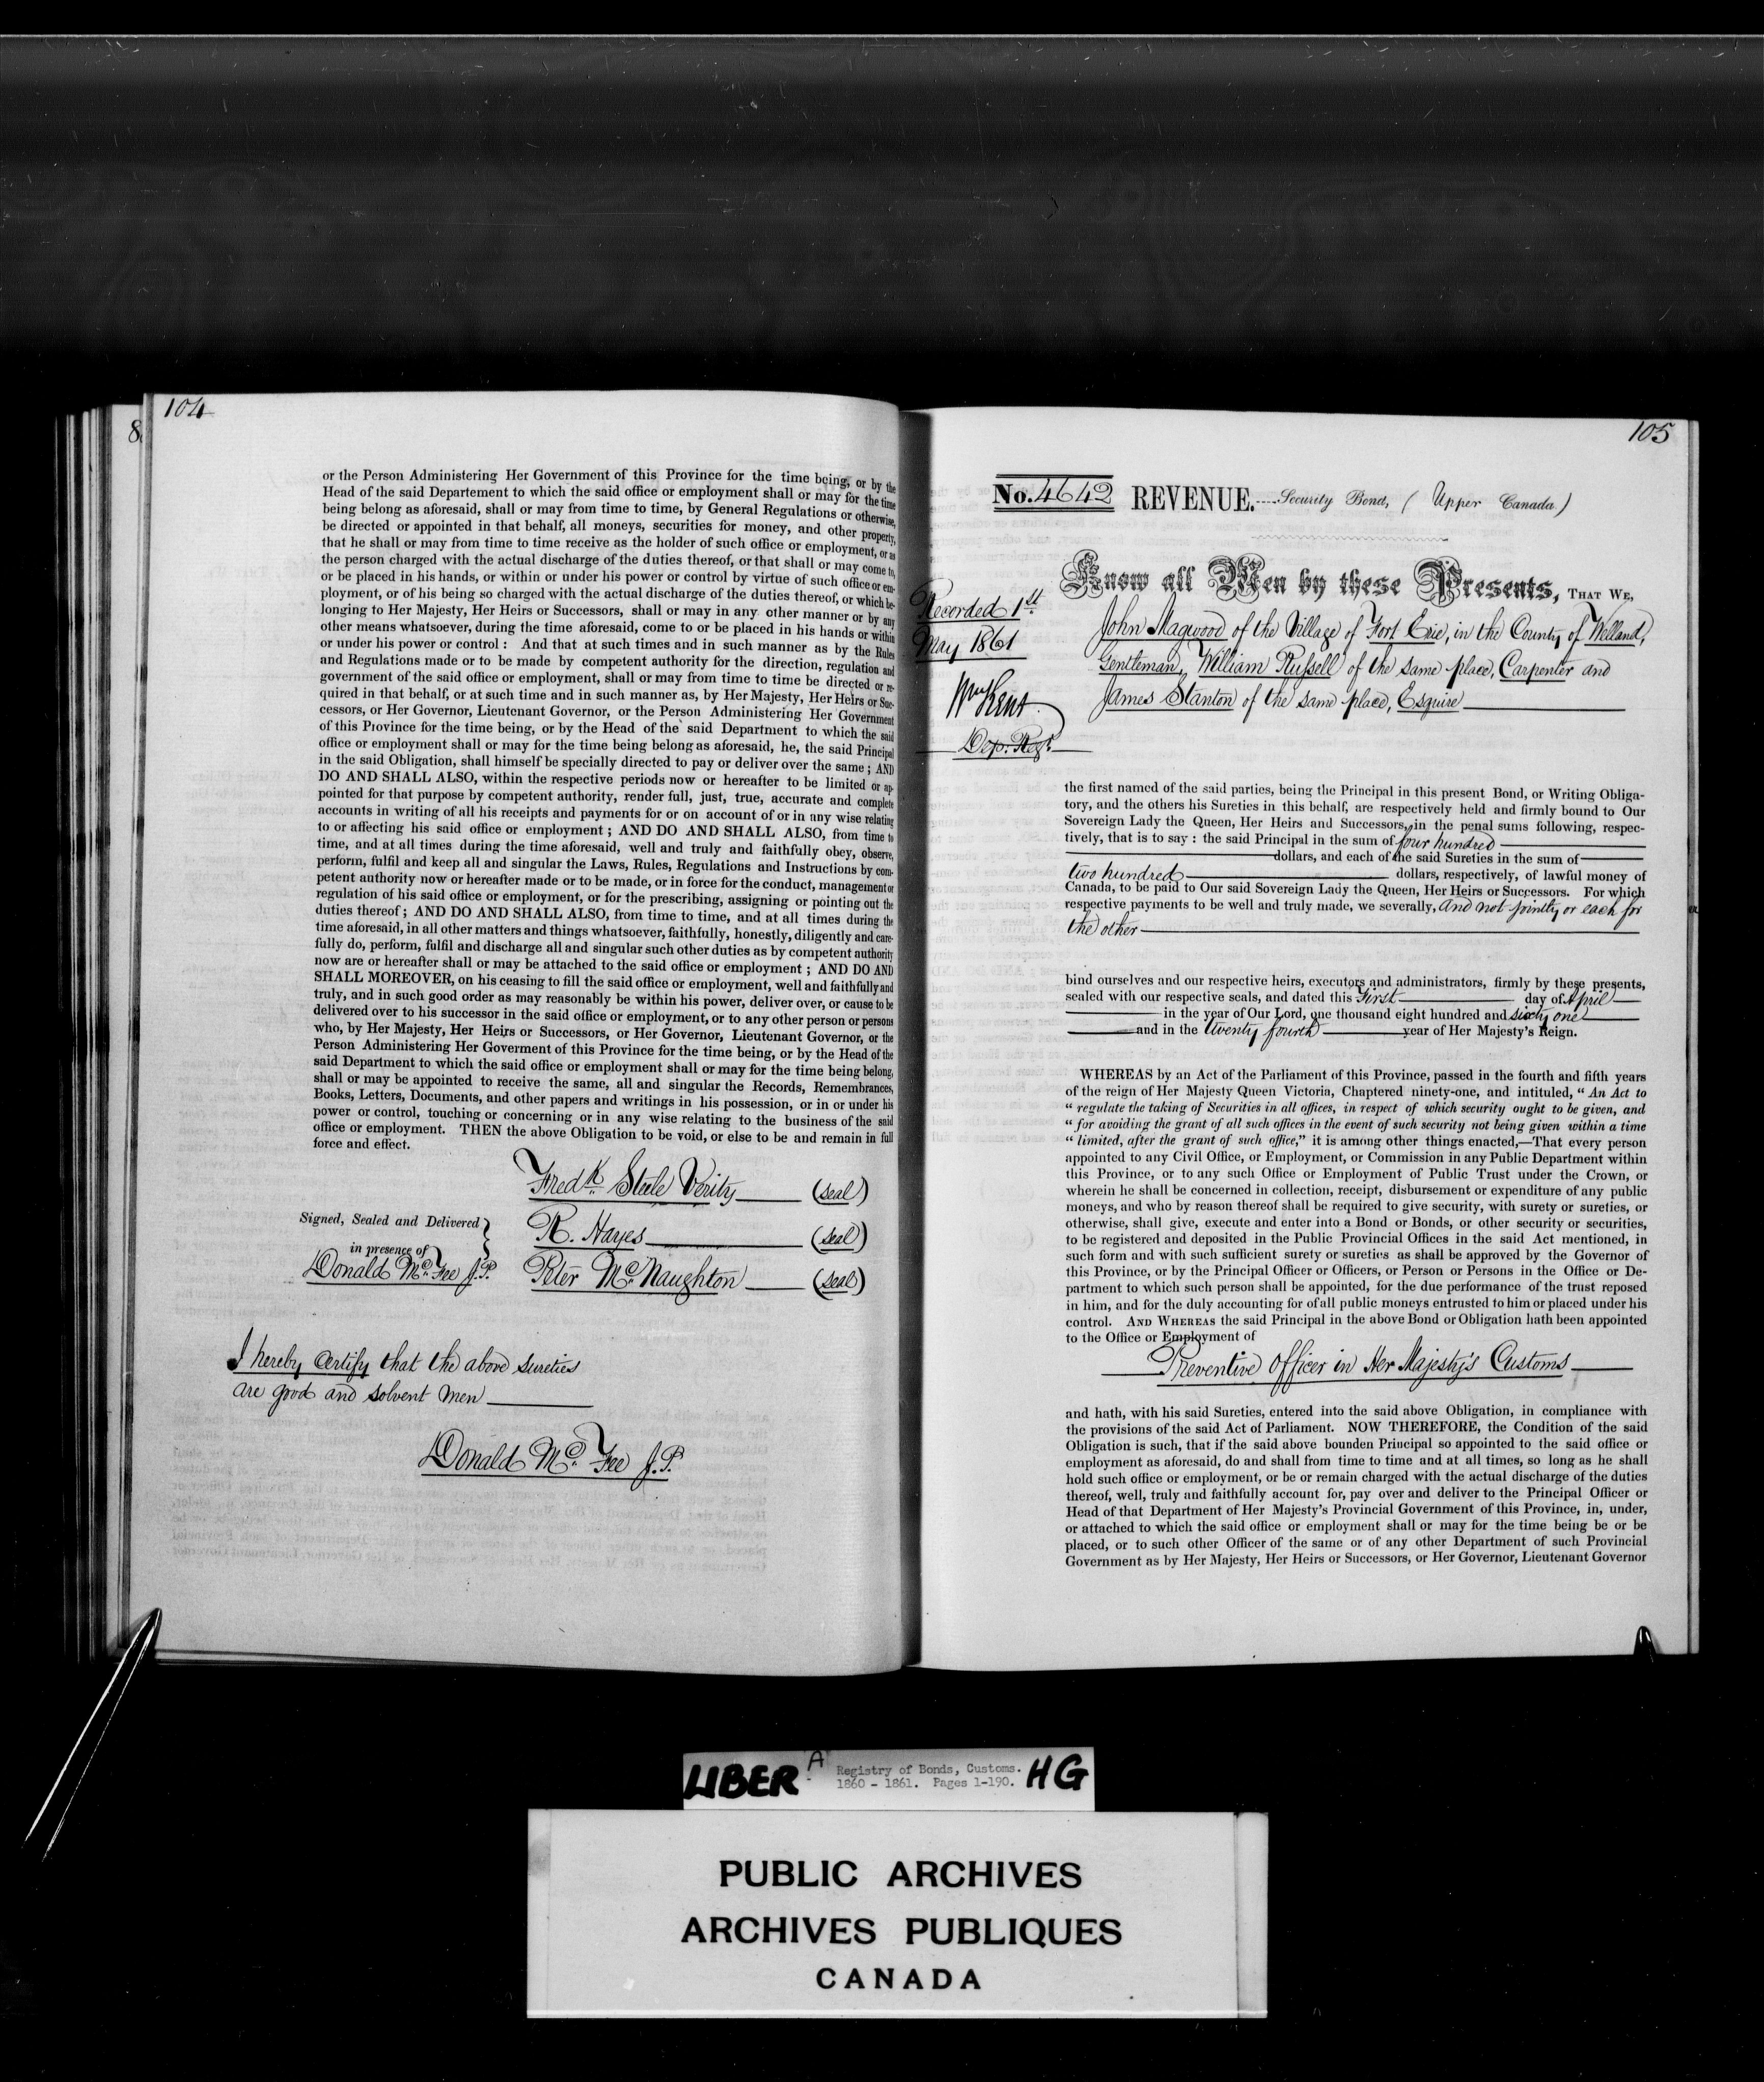 104
or the Person Administering Her Government of this Province for the time being, or by the
Head of the said Departement to which the said office or employment shall or may for the time
being belong as aforesaid, shall or may from time to time, by General Regulations or otherwise,
be directed or appointed in that behalf, all moneys, securities for money, and other property,
that he shall or may from time to time receive as the holder of such office or employment, or as
the person charged with the actual discharge of the duties thereof, or that shall or may come to,
or be placed in his hands, or within or under his power or control by virtue of such office or em-
ployment, or of his being so charged with the actual discharge of the duties thereof, or which be-
longing to Her Majesty, Her Heirs or Successors, shall or may in any other manner or by any
other means whatsoever, during the time aforesaid, come to or be placed in his hands or within
or under his power or control : And that at such times and in such manner as by the Rules
and Regulations made or to be made by competent authority for the direction, regulation and
government of the said office or employment, shall or may from time to time be directed or re-
quired in that behalf, or at such time and in such manner as, by Her Majesty, Her Heirs or Suc-
cessors, or Her Governor, Lieutenant Governor, or the Person Administering Her Government
of this Province for the time being, or by the Head of the said Department to which the said
office or employment shall or may for the time being belong as aforesaid, he, the said Principal
in the said Obligation, shall himself be specially directed to pay or deliver over the same ; AND
DO AND SHALL ALSO, within the respective periods now or hereafter to be limited or ap-
pointed for that purpose by competent authority, render full, just, true, accurate and complete
accounts in writing of all his receipts and payments for or on account of or in any wise relating
to or affecting his said office or employment ; AND DO AND SHALL ALSO, from time to
time, and at all times during the time aforesaid, well and truly and faithfully obey, observe,
perform, fulfil and keep all and singular the Laws, Rules, Regulations and Instructions by com-
petent authority now or hereafter made or to be made, or in force for the conduct, management or
regulation of his said office or employment, or for the prescribing, assigning or pointing out the
duties thereof ; AND DO AND SHALL ALSO, from time to time, and at all times during the
time aforesaid, in all other matters and things whatsoever, faithfully, honestly, diligently and care-
fully do, perform, fulfil and discharge all and singular such other duties as by competent authority
now are or hereafter shall or may be attached to the said office or employment ; AND DO AND
SHALL MOREOVER, on his ceasing to fill the said office or employment, well and faithfully and
truly, and in such good order as may reasonably be within his power, deliver over, or cause to be
delivered over to his successor in the said office or employment, or to any other person or persons
who, by Her Majesty, Her Heirs or Successors, or Her Governor, Lieutenant Governor, or the
Person Administering Her Goverment of this Province for the time being, or by the Head of the
said Department to which the said office or employment shall or may for the time being belong,
shall or may be appointed to receive the same, all and singular the Records, Remembrances,
Books, Letters, Documents, and other papers and writings in his possession, or in or under his
power or control, touching or concerning or in any wise relating to the business of the said
office or employment. THEN the above Obligation to be void, or else to be and remain in full
force and effect.
Fredk. Steele Verity (seal)
Signed, Sealed and Delivered
R. Hayes (seal)
in presence of
Donald McFee J.P. Peter McNaughton (seal)
I hereby Certify that the above sureties
are good and solvent men
Donald McFee J.P.
8
105
No. 4642 REVENUE. Security Bond, (Upper Canada)
Know all Men by these Presents, THAT WE,
Recorded 1st
May 1861
Wm Kent
Dep. Regr.
John Magwood of the Village of Fort Erie, in the County of Welland,
Gentleman, William Russell of the same place, Carpenter and
James Stanton of the same place, Esquire
the first named of the said parties, being the Principal in this present Bond, or Writing Obliga-
tory, and the others his Sureties in this behalf, are respectively held and firmly bound to Our
Sovereign Lady the Queen, Her Heirs and Successors, in the penal sums following, respec-
tively, that is to say : the said Principal in the sum of four hundred
dollars, and each of the said Sureties in the sum of
two hundred dollars, respectively, of lawful money of
Canada, to be paid to Our said Sovereign Lady the Queen, Her Heirs or Successors. For which
respective payments to be well and truly made, we severally, and not jointly or each for
the other
bind ourselves and our respective heirs, executors and administrators, firmly by these presents,
sealed with our respective seals, and dated this First day of April
in the year of Our Lord, one thousand eight hundred and sixty one
and in the twenty fourth year of Her Majesty's Reign.
WHEREAS by an Act of the Parliament of this Province, passed in the fourth and fifth years
of the reign of Her Majesty Queen Victoria, Chaptered ninety-one, and intituled, " An Act to
" regulate the taking of Securities in all offices, in respect of which security ought to be given, and
" for avoiding the grant of all such offices in the event of such security not being given within a time
" limited, after the grant of such office," it is among other things enacted,—That every person
appointed to any Civil Office, or Employment, or Commission in any Public Department within
this Province, or to any such Office or Employment of Public Trust under the Crown, or
wherein he shall be concerned in collection, receipt, disbursement or expenditure of any public
moneys, and who by reason thereof shall be required to give security, with surety or sureties, or
otherwise, shall give, execute and enter into a Bond or Bonds, or other security or securities,
to be registered and deposited in the Public Provincial Offices in the said Act mentioned, in
such form and with such sufficient surety or sureties as shall be approved by the Governor of
this Province, or by the Principal Officer or Officers, or Person or Persons in the Office or De-
partment to which such person shall be appointed, for the due performance of the trust reposed
in him, and for the duly accounting for of all public moneys entrusted to him or placed under his
control. AND WHEREAS the said Principal in the above Bond or Obligation hath been appointed
to the Office or Employment of
Preventive Officer in Her Majesty's Customs
and hath, with his said Sureties, entered into the said above Obligation, in compliance with
the provisions of the said Act of Parliament. NOW THEREFORE, the Condition of the said
Obligation is such, that if the said above bounden Principal so appointed to the said office or
employment as aforesaid, do and shall from time to time and at all times, so long as he shall
hold such office or employment, or be or remain charged with the actual discharge of the duties
thereof, well, truly and faithfully account for, pay over and deliver to the Principal Officer or
Head of that Department of Her Majesty's Provincial Government of this Province, in, under,
or attached to which the said office or employment shall or may for the time being be or be
placed, or to such other Officer of the same or of any other Department of such Provincial
Government as by Her Majesty, Her Heirs or Successors, or Her Governor, Lieutenant Governor
LIBER A Registry of Bonds, Customs. HG
1860 - 1861. Pages 1-190.
PUBLIC ARCHIVES
ARCHIVES PUBLIQUES
CANADA